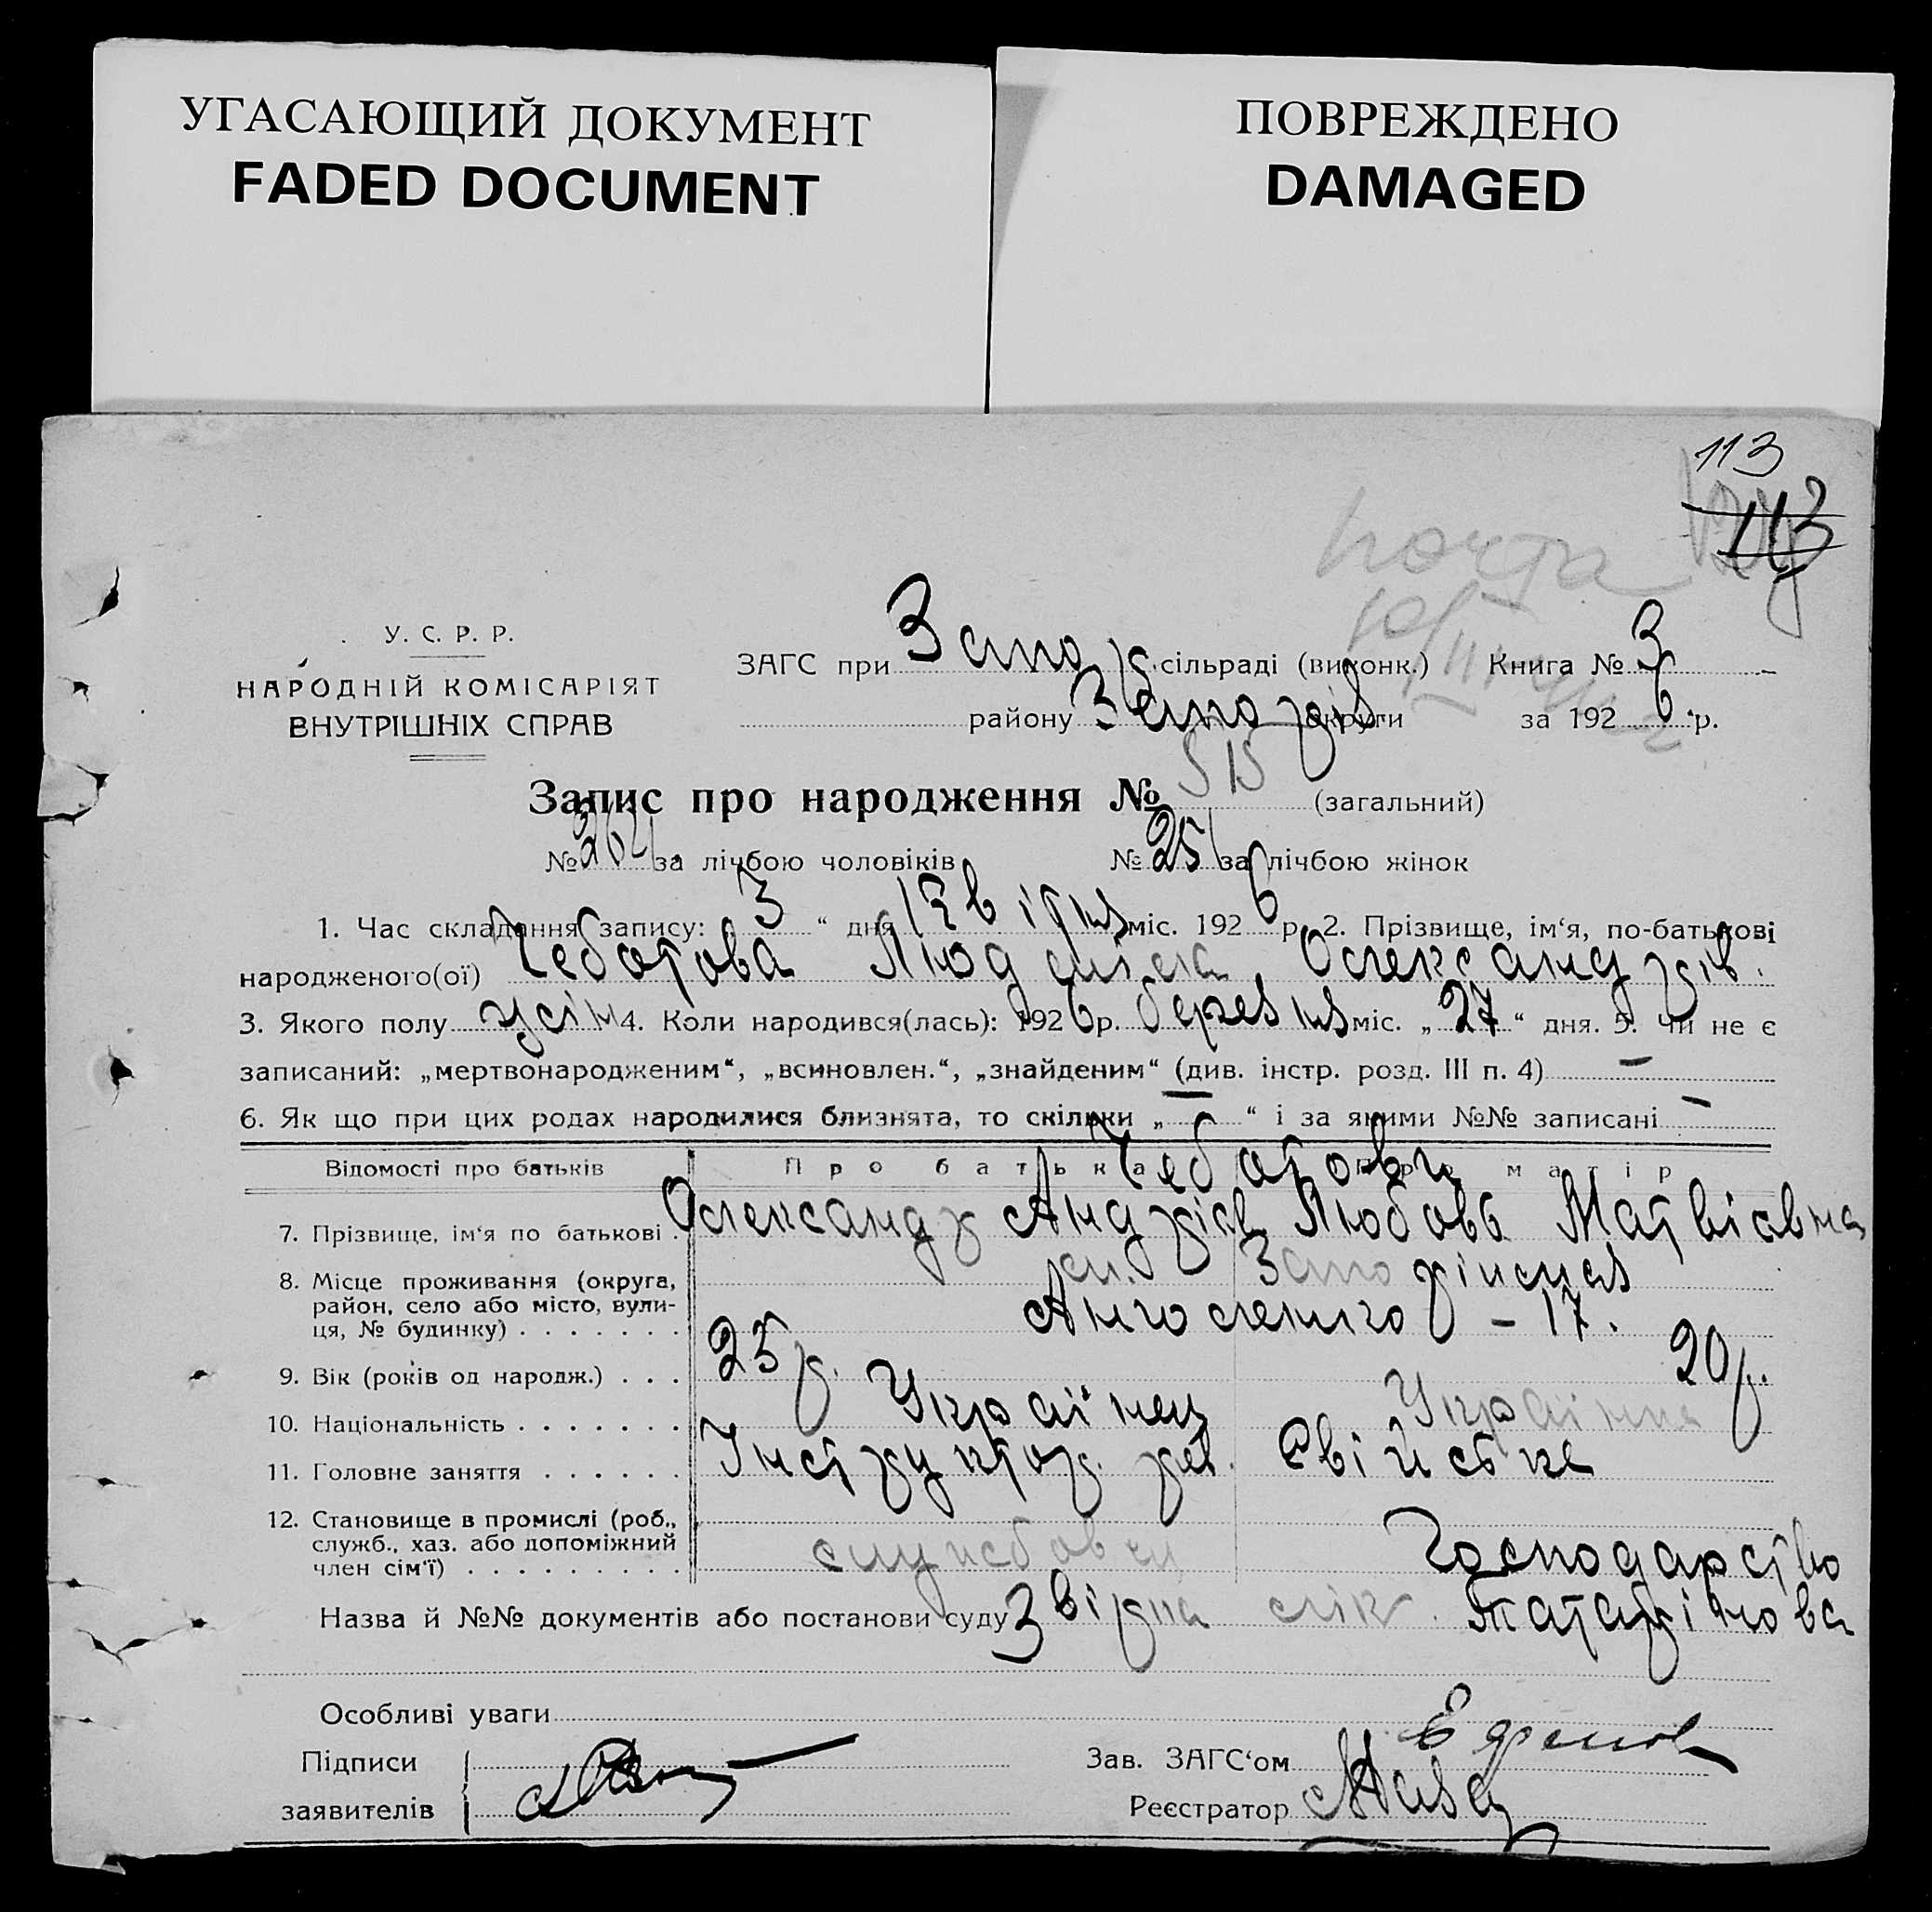 УГАСАЮЩИЙ ДОКУМЕНТ
FADED DOCUMENT
ПОВРЕЖДЕНО
DAMAGED
113
113
почта
У. С. Р. Р.
НАРОДНІЙ КОМІСАРІЯТ
ВНУТРІШНІХ СПРАВ
ЗАГС при Запор. сільраді (виконк.) Книга № 3
району Запоріз. округи за 1926 р.
Запис про народження № 515 (загальний)
№ 264 за лічбою чоловіків № 251 за лічбою жінок
1. Час складання запису: „3“ дня Квітня міс. 1926 р. 2. Прізвище, ім‘я, по-батькові
народженого(ої) Чеботова Людмила Олександрів.
3. Якого полу жін 4. Коли народився(лась): 1926 р. березня міс. „27“ дня. 5. Чи не є
записаний: „мертвонародженим“, „всиновлен.“, „знайденим“ (див. інстр. розд. III п. 4) —
6. Як що при цих родах народилися близнята, то скільки „—“ і за якими №№ записані —
Відомості про батьків Про батька Про матір
Чеботови
7. Прізвище, ім‘я по батькові . Олександр Андріїв Любовь Матвіївна
8. Місце проживання (округа,
район, село або місто, вули-
ця, № будинку) . . . . . . .
м. Запоріжжя
– 17.
9. Вік (років од народж.) . . . 25 р. 20 р.
10. Національність . . . . . . . Українец Українка
11. Головне заняття . . . . . . Інструктор. Свійське
12. Становище в промислі (роб.,
служб., хаз. або допоміжний
член сім‘ї) . . . . . . . . .
службовец Господарство
Назва й №№ документів або постанови суду Звірка лік. Татарінова
Особливі уваги
Підписи
заявителів
Зав. ЗАГС‘ом
Реєстратор